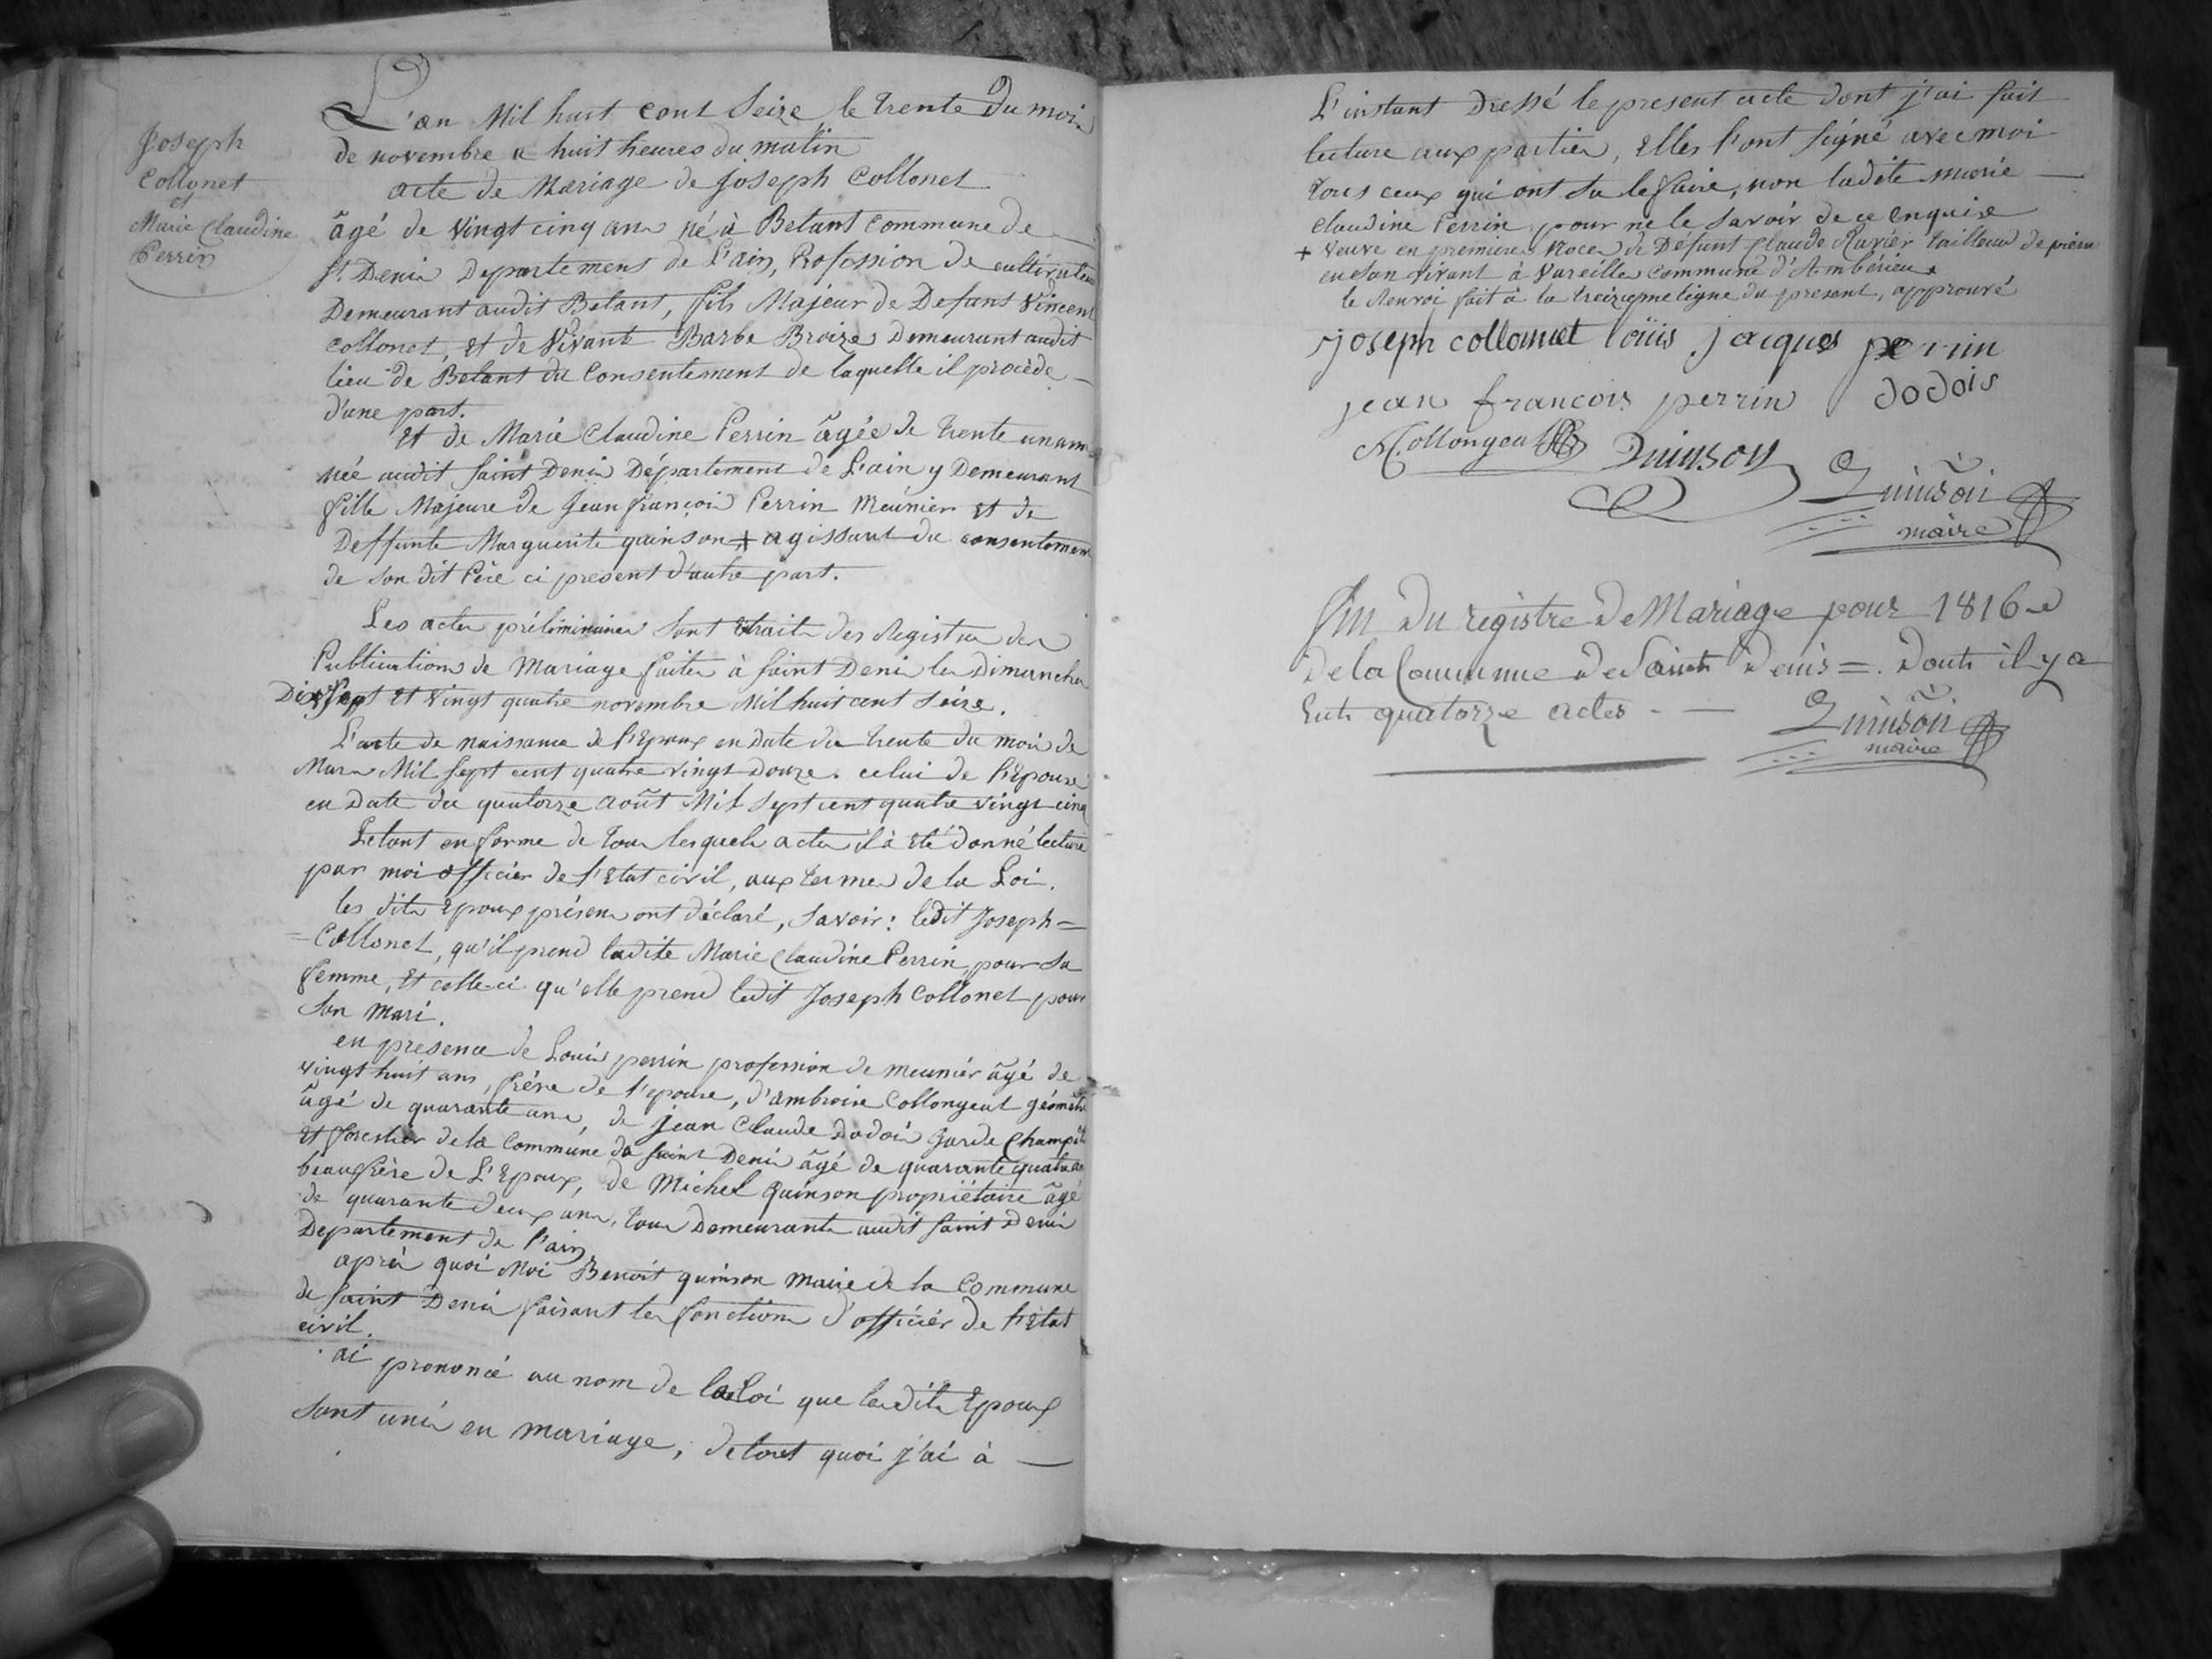 Joseph
Collonet
et
Marie Claudine
Perrin
L'an Mil huit cent Seize le trente Du mois
de novembre a huit heures du matin
acte de Mariage de Joseph Collonet
âgé de Vingt cinq ans né à Belant Commune de
St. Denis Departement de L'ain, Profession de cultivateur
Demeurant audit Belant, fils Majeur de Defunt Vincent
Collonet, et de Vivante Barbe Broize Demeurant audit
lieu de Belant du Consentement de laquelle il procède
d'une part.
Et de Marie Claudine Perrin âgée de trente un ans
née audit Saint Denis Département de L'ain y Demeurant
fille Majeure de Jean françois Perrin Meunier Et de
Deffunte Marguerite quinson + agissant du consentement
de son dit Père ci present d'autre part.
Les actes préliminaires sont Extraits des Registres des
Publications de Mariage faites à Saint Denis les Dimanches
Dix Sept Et Vingt quatre novembre Mil huit cent Seize.
L'acte de naissance de l'Epoux en Date du trente du mois de
Mars Mil sept cent quatre vingt Douze. celui de l'Epouse
en Date du quatorze août Mil sept cent quatre vingt cinq
Le tout en forme de tous lesquels actes il à Eté donné lecture
par moi officier de l'Etat civil, aux termes de la Loi.
les dits Epoux présens ont déclaré, savoir : ledit Joseph =
= Collonet, qu'il prend ladite Marie Claudine Perrin pour sa
femme, Et celle-ci qu'elle prend ledit Joseph Collonet pour
son mari.
en presence de Louis perrin profession de meunier âgé de
vingt huit ans, frère de l'epouse, d'ambroise Collongeat géomètre
âgé de quarante ans, de Jean Claude Dodois Garde Champêtre
Et forestier de la Commune de Saint Denis âgé de quarante quatre ans
beaufrère de L'Epoux, de Michel Quinson propriétaire âgé
de quarante deux ans, tous Demeurants audit Saint Denis
Departement de l'ain
après quoi Moi Benoit quinson Maire de la Commune
de Saint Denis faisant les fonctions d'officier de l'Etat
civil.
ai prononcé au nom de la Loi que les dits Epoux
sont unis en mariage, de tout quoi j'ai à
L'instant Dressé le present acte dont j'ai fait
lecture aux parties, Elles l'ont Signé avec moi
tous ceux qui ont su le faire, non ladite marie
Claudine Perrin pour ne le savoir de ce Enquise
+ Veuve en premieres Noces de Défunt Claude Ravier tailleur de pierre
en son vivant à Vareilles Commune d'Ambérieu.
le Renvoi fait à la treizieme ligne du present, approuvé
joseph collomet loüis jacques perrin
jean francois perrin dodois
Collongeat Quinson
Quinson
maire
Fin du registre de Mariage pour 1816
de la Commune de Saint Denis =. Dont il y a
Eut quatorze actes
Quinson
maire